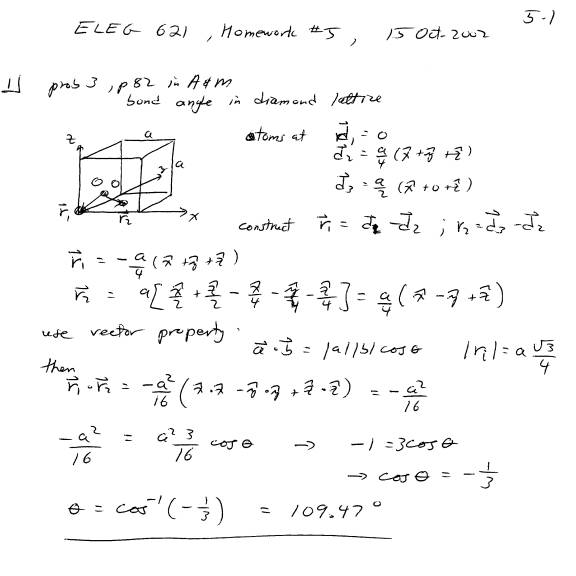 5-1
ELEG 621, Homework #5, 15 Oct. 2002
1] prob 3, p 82 in A&M
bond angle in diamond lattice
z a a y x r⃗₁ r⃗₂
atoms at d⃗₁ = 0
d⃗₂ = a/4 (x̂ + ŷ + ẑ)
d⃗₃ = a/2 (x̂ + 0 + ẑ)
construct r⃗₁ = d⃗₁ - d⃗₂ ; r₂ = d⃗₃ - d⃗₂
r⃗₁ = -a/4 (x̂ + ŷ + ẑ)
r⃗₂ = a[x̂/2 + ẑ/2 - x̂/4 - ŷ/4 - ẑ/4] = a/4 (x̂ - ŷ + ẑ)
use vector property.
a⃗·b⃗ = |a||b| cosθ |rᵢ| = a √3/4
then
r⃗₁·r⃗₂ = -a²/16 (x̂·x̂ - ŷ·ŷ + ẑ·ẑ) = -a²/16
-a²/16 = a² 3/16 cosθ → -1 = 3cosθ
→ cosθ = -1/3
θ = cos⁻¹(-1/3) = 109.47°